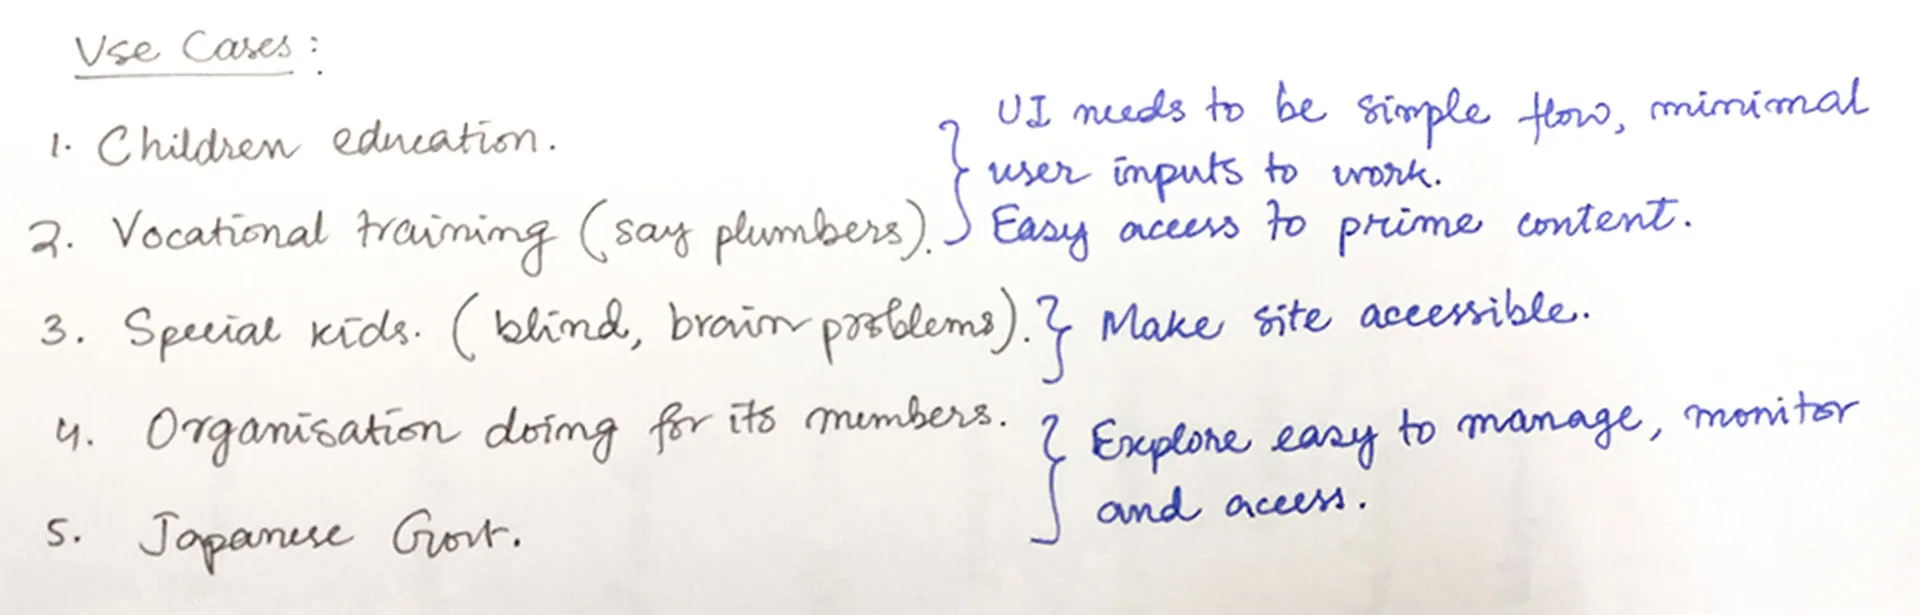 Use Cases :
1. Children education.
2. Vocational training (say plumbers).
3. Special kids. ( blind, brain problems).
4. Organisation doing for its members.
5. Japanese Govt.
UI needs to be simple flow, minimal
user inputs to work.
Easy access to prime content.
Make site accessible.
Explore easy to manage, monitor
and access.